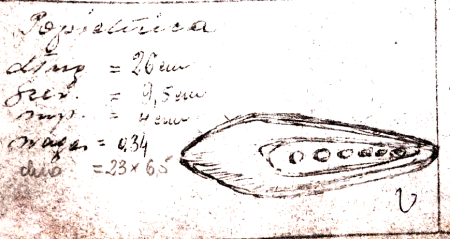 Popielnica
dług = 26 cm
szer = 9,5 cm
wys. = 4 cm
waga = 0,34
dno = 23 x 6,5